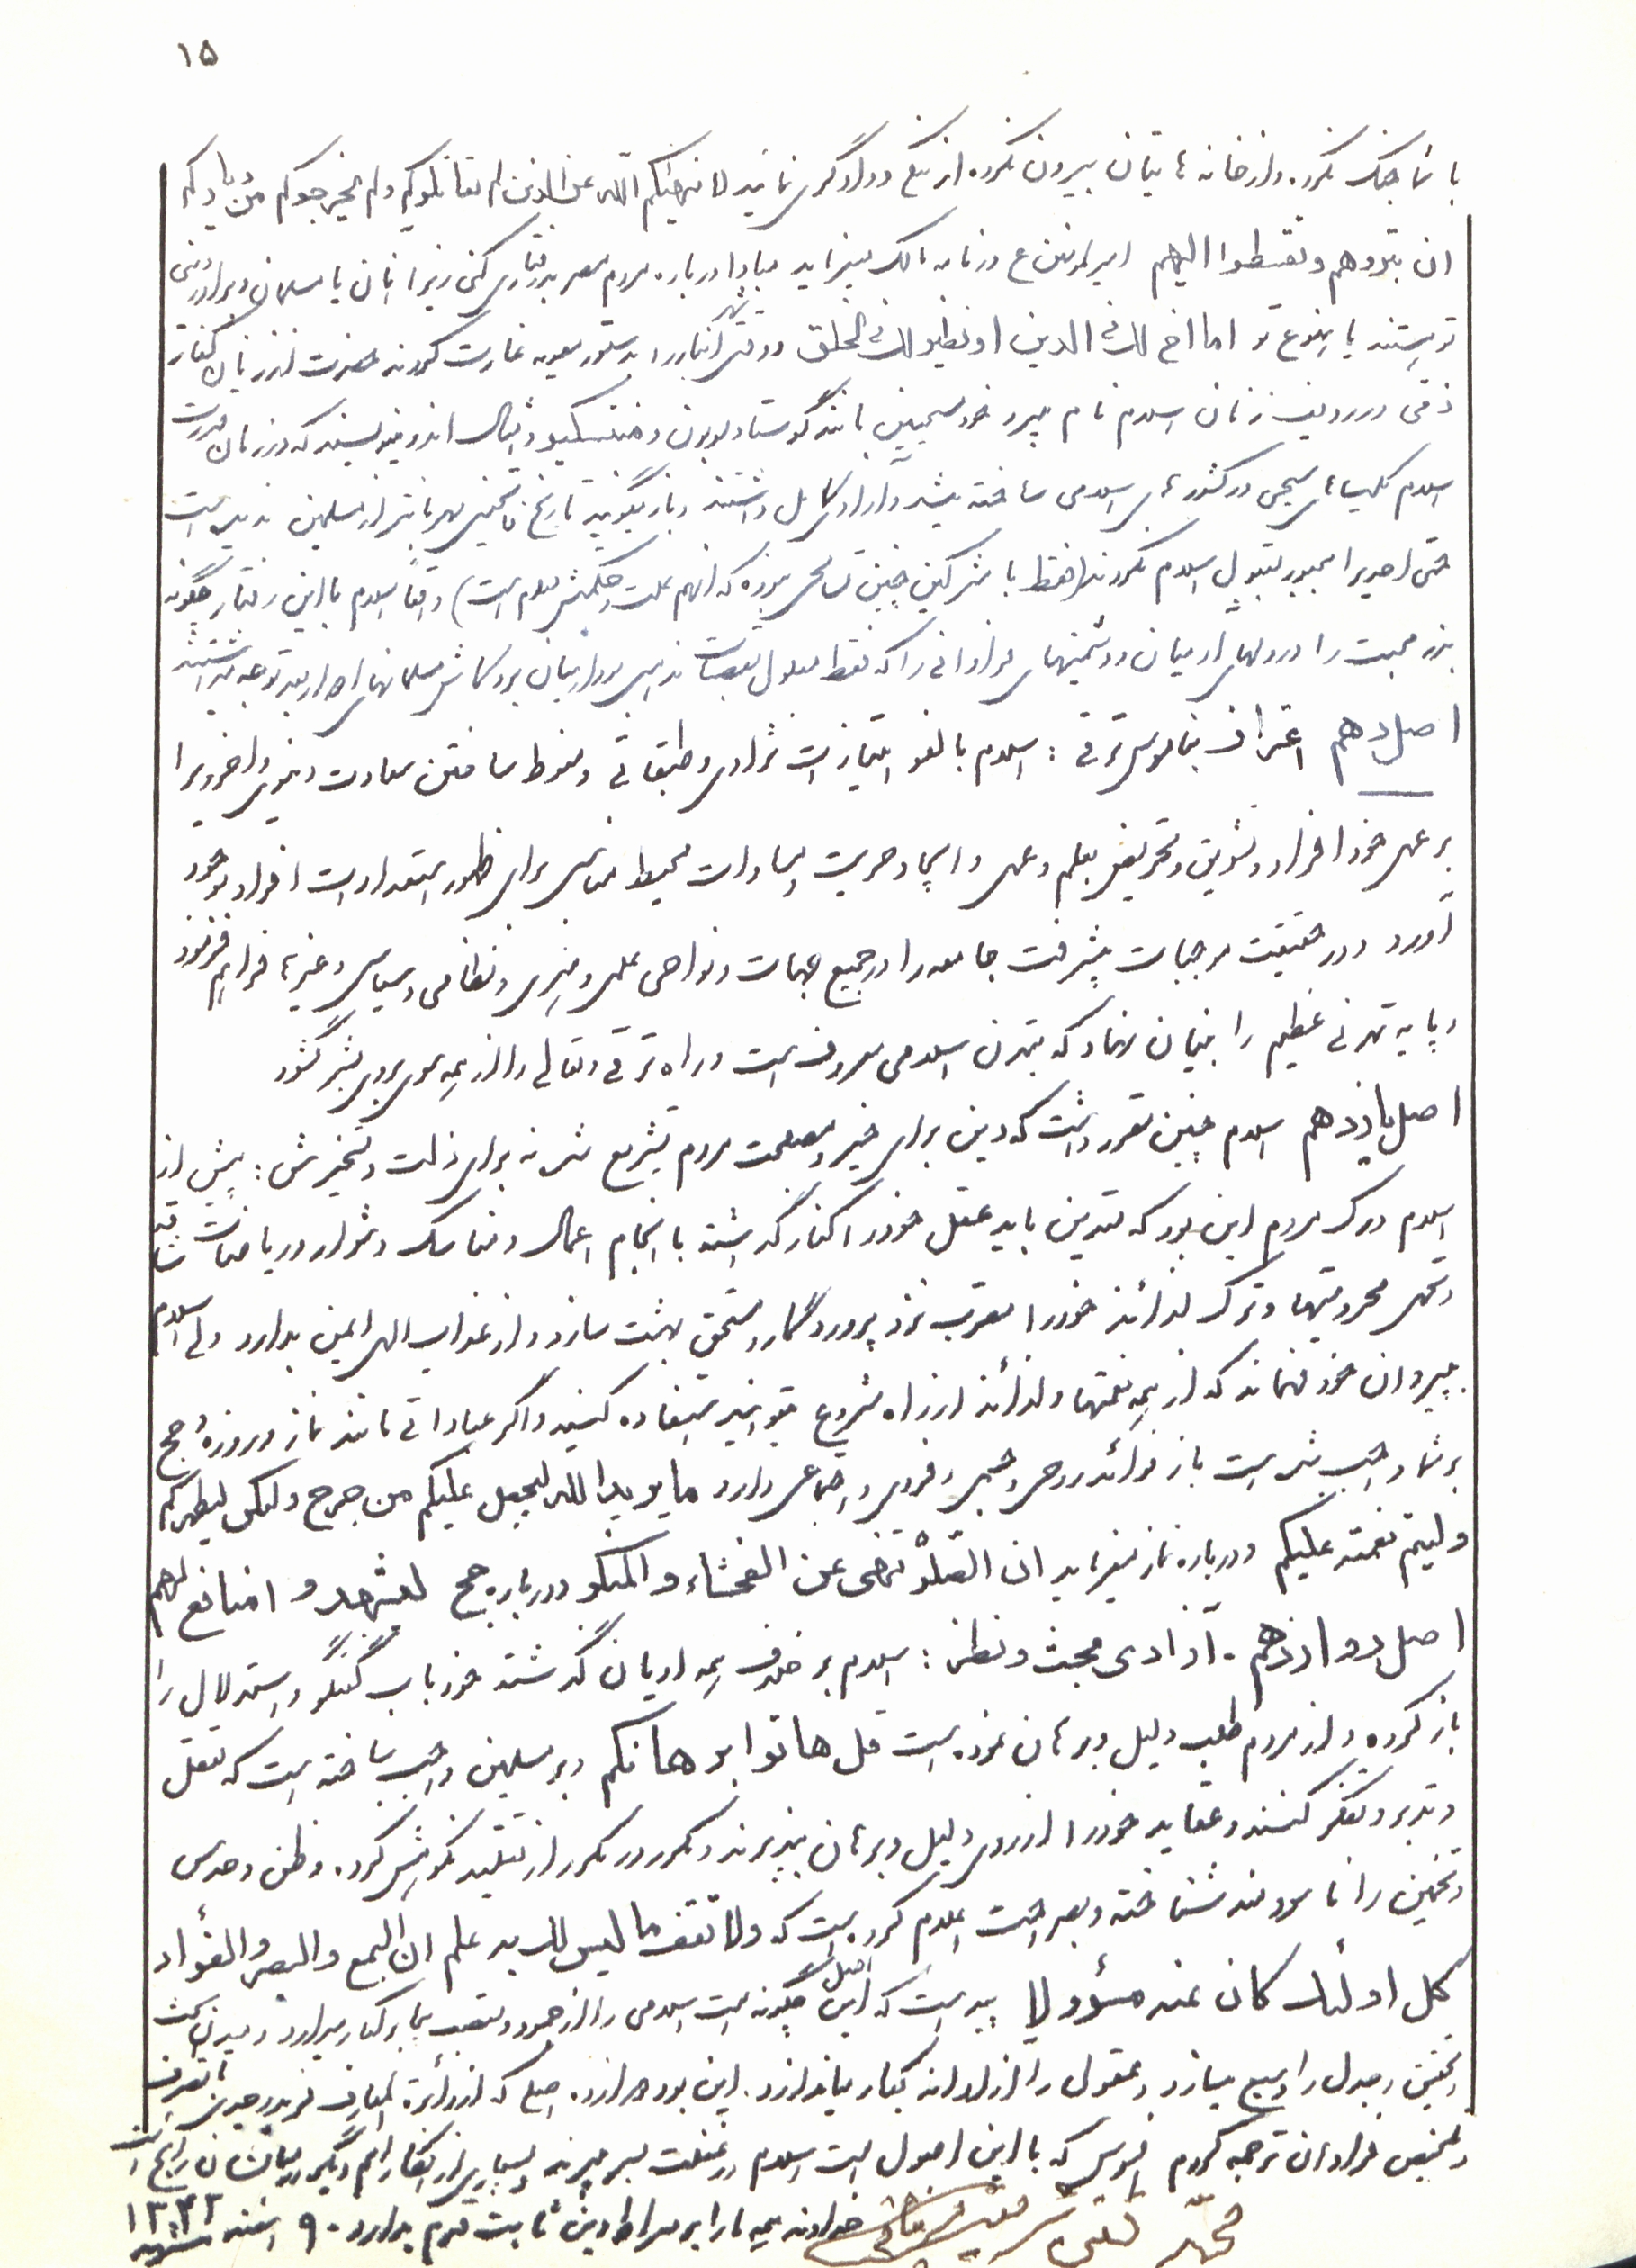 ۱۵
با شما جنگ نکرده و از خانه هایتان بیرون نکرده از نیکی و دادگری نمائید لا ینهیکم الله عن الذین لم یقاتلوکم ولم یخرجوکم من دیارکم
ان تبروهم وتقسطوا الیهم امیرالمؤمنین ع در نامه مالک میفرماید مبادا درباره مردم مصر بدرفتاری کنی زیرا اینان یا مسلمان و برادر دینی
تو هستند یا همنوع تو اما اخ لک فی الدین او نظیر لک فی الخلق و وقتی شهر انبار را بدستور معویه غارت کردند حضرت از زنان کفار
ذمی در ردیف زنان اسلام نام میبرد خود مسیحیین مانند گوستاولوبون و منتسکیو و امثال اندو مینویسند که در زمان قدرت
اسلام کلیساهای مسیحی در کشورهای اسلامی ساخته میشد و آزادی کامل داشتند و باز میگویند تاریخ فاتحینی مهربانتر از مسلمین ندیده است
حتی احدیرا مجبور بقبول اسلام نکردند (فقط با مشرکین چنین تسامحی نبوده که آنهم علت و حکمتش معلوم است) واقعاً اسلام با این رفتار چگونه
بذر محبت را در دلهای آدمیان و دشمنیهای فراوانی را که فقط معلول تعصبات مذهبی بود از میان برد کاش مسلمانهای امروز بدین توجه میداشتند
اصل دهم اعتراف بناموس ترقی : اسلام با لغو امتیازات نژادی و طبقاتی و منوط ساختن سعادت دنیوی و اخرویرا
بر عمل خود افراد و تشویق و تحریض بعلم و عمل و ایجاد حریت و مساوات محیط مناسبی برای ظهور استعدادات افراد بوجود
آورد و در حقیقت موجبات پیشرفت جامعه را در جمیع جهات و نواحی علمی و هنری و نظامی و سیاسی و غیرها فراهم فرمود
و پایه تمدنی عظیم را بنیان نهاد که بتمدن اسلامی معروف است و راه ترقی و تعالی را از همه سوی بروی بشر گشود
اصل یازدهم اسلام چنین مقرر داشت که دین برای خیر و مصلحت مردم تشریع شد نه برای ذلت و تسخیرش : پیش از
اسلام درک مردم این بود که متدین باید عقل خود را کنار گذاشته با انجام اعمال و مناسک دشوار و ریاضات شاقه
و تحمل محرومیتها و ترک لذائذ خود را مقرب نزد پروردگار و مستحق بهشت سازد و از عذاب الهی ایمن بدارد ولی اسلام
بپیروان خود فهماند که از همه نعمتها و لذائذ از راه مشروع میتوانید استفاده کنید و اگر عباداتی مانند نماز و روزه و حج
بر شما واجب شده است باز فوائد روحی و جسمی و فردی و اجتماعی دارد ما یرید الله لیجعل علیکم من حرج ولکن لیطهرکم
ولیتم نعمته علیکم و درباره نماز میفرماید ان الصلوة تنهی عن الفحشاء والمنکر و درباره حج لیشهدوا منافع لهم
اصل دوازدهم - آزادی بحث و نظر : اسلام بر خلاف همه ادیان گذشته خود باب گفتگو و استدلال را
باز کرده و از مردم طلب دلیل و برهان نموده است قل هاتوا برهانکم و بر مسلمین واجب ساخته است که تعقل
و تدبر و تفکر کنند و عقاید خود را از روی دلیل و برهان بپذیرند و مکرر در مکرر از تقلید نکوهش کرده و ظن و حدس
و تخمین را ناسودمند شناخته و بصراحت اعلام کرده است که ولا تقف ما لیس لک به علم ان السمع والبصر والفؤاد
کل اولئک کان عنه مسؤولا پیداست که این اصل چگونه امت اسلامی را از جمود و تعصب بیجا برکنار میدارد و میدان بحث
و تحقیق و جدل را وسیع میسازد و عقول را آزادانه بکار میاندازد . این بود دوازده اصلی که از دائرة المعارف فرید وجدی با تصرف
و تلخیص فراوان ترجمه کردم افسوس که با این اصول امت اسلام در غفلت بسر میبرند و بسیاری از افکار امم دیگر در میانشان رایج است
خداوند همه ما را بر صراط دینش ثابت قدم بدارد - ۹ اسفند ۱۳۴۲ مشهد
محمد تقی شریعتی